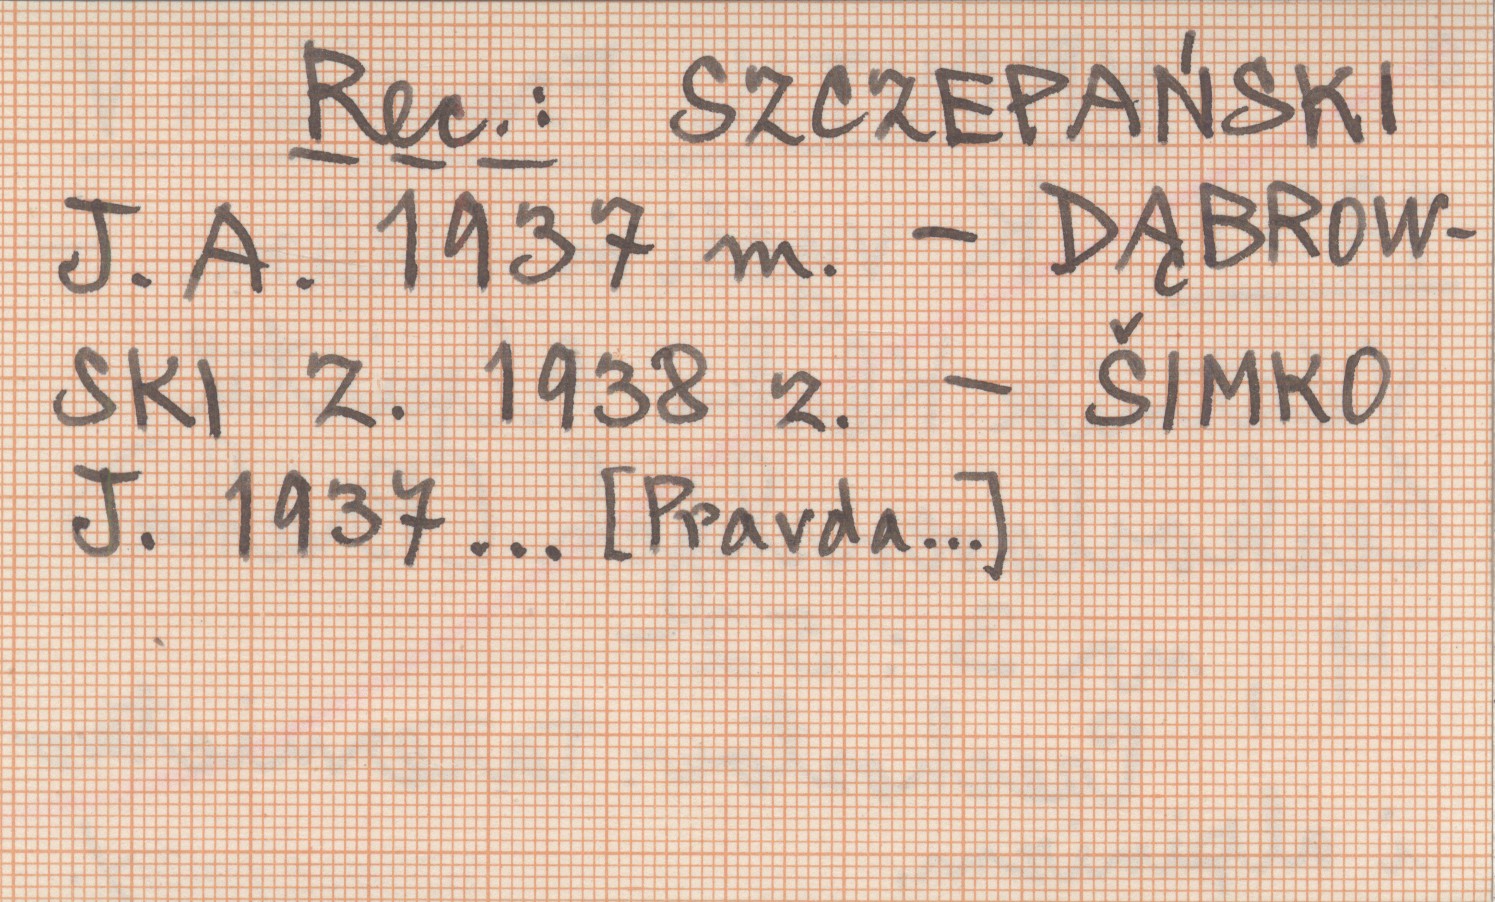 Rec.: SZCZEPAŃSKI
J. A. 1937 m. – DĄBROW-
SKI Z. 1938 z. – ŠIMKO
J. 1937... [Pravda...]